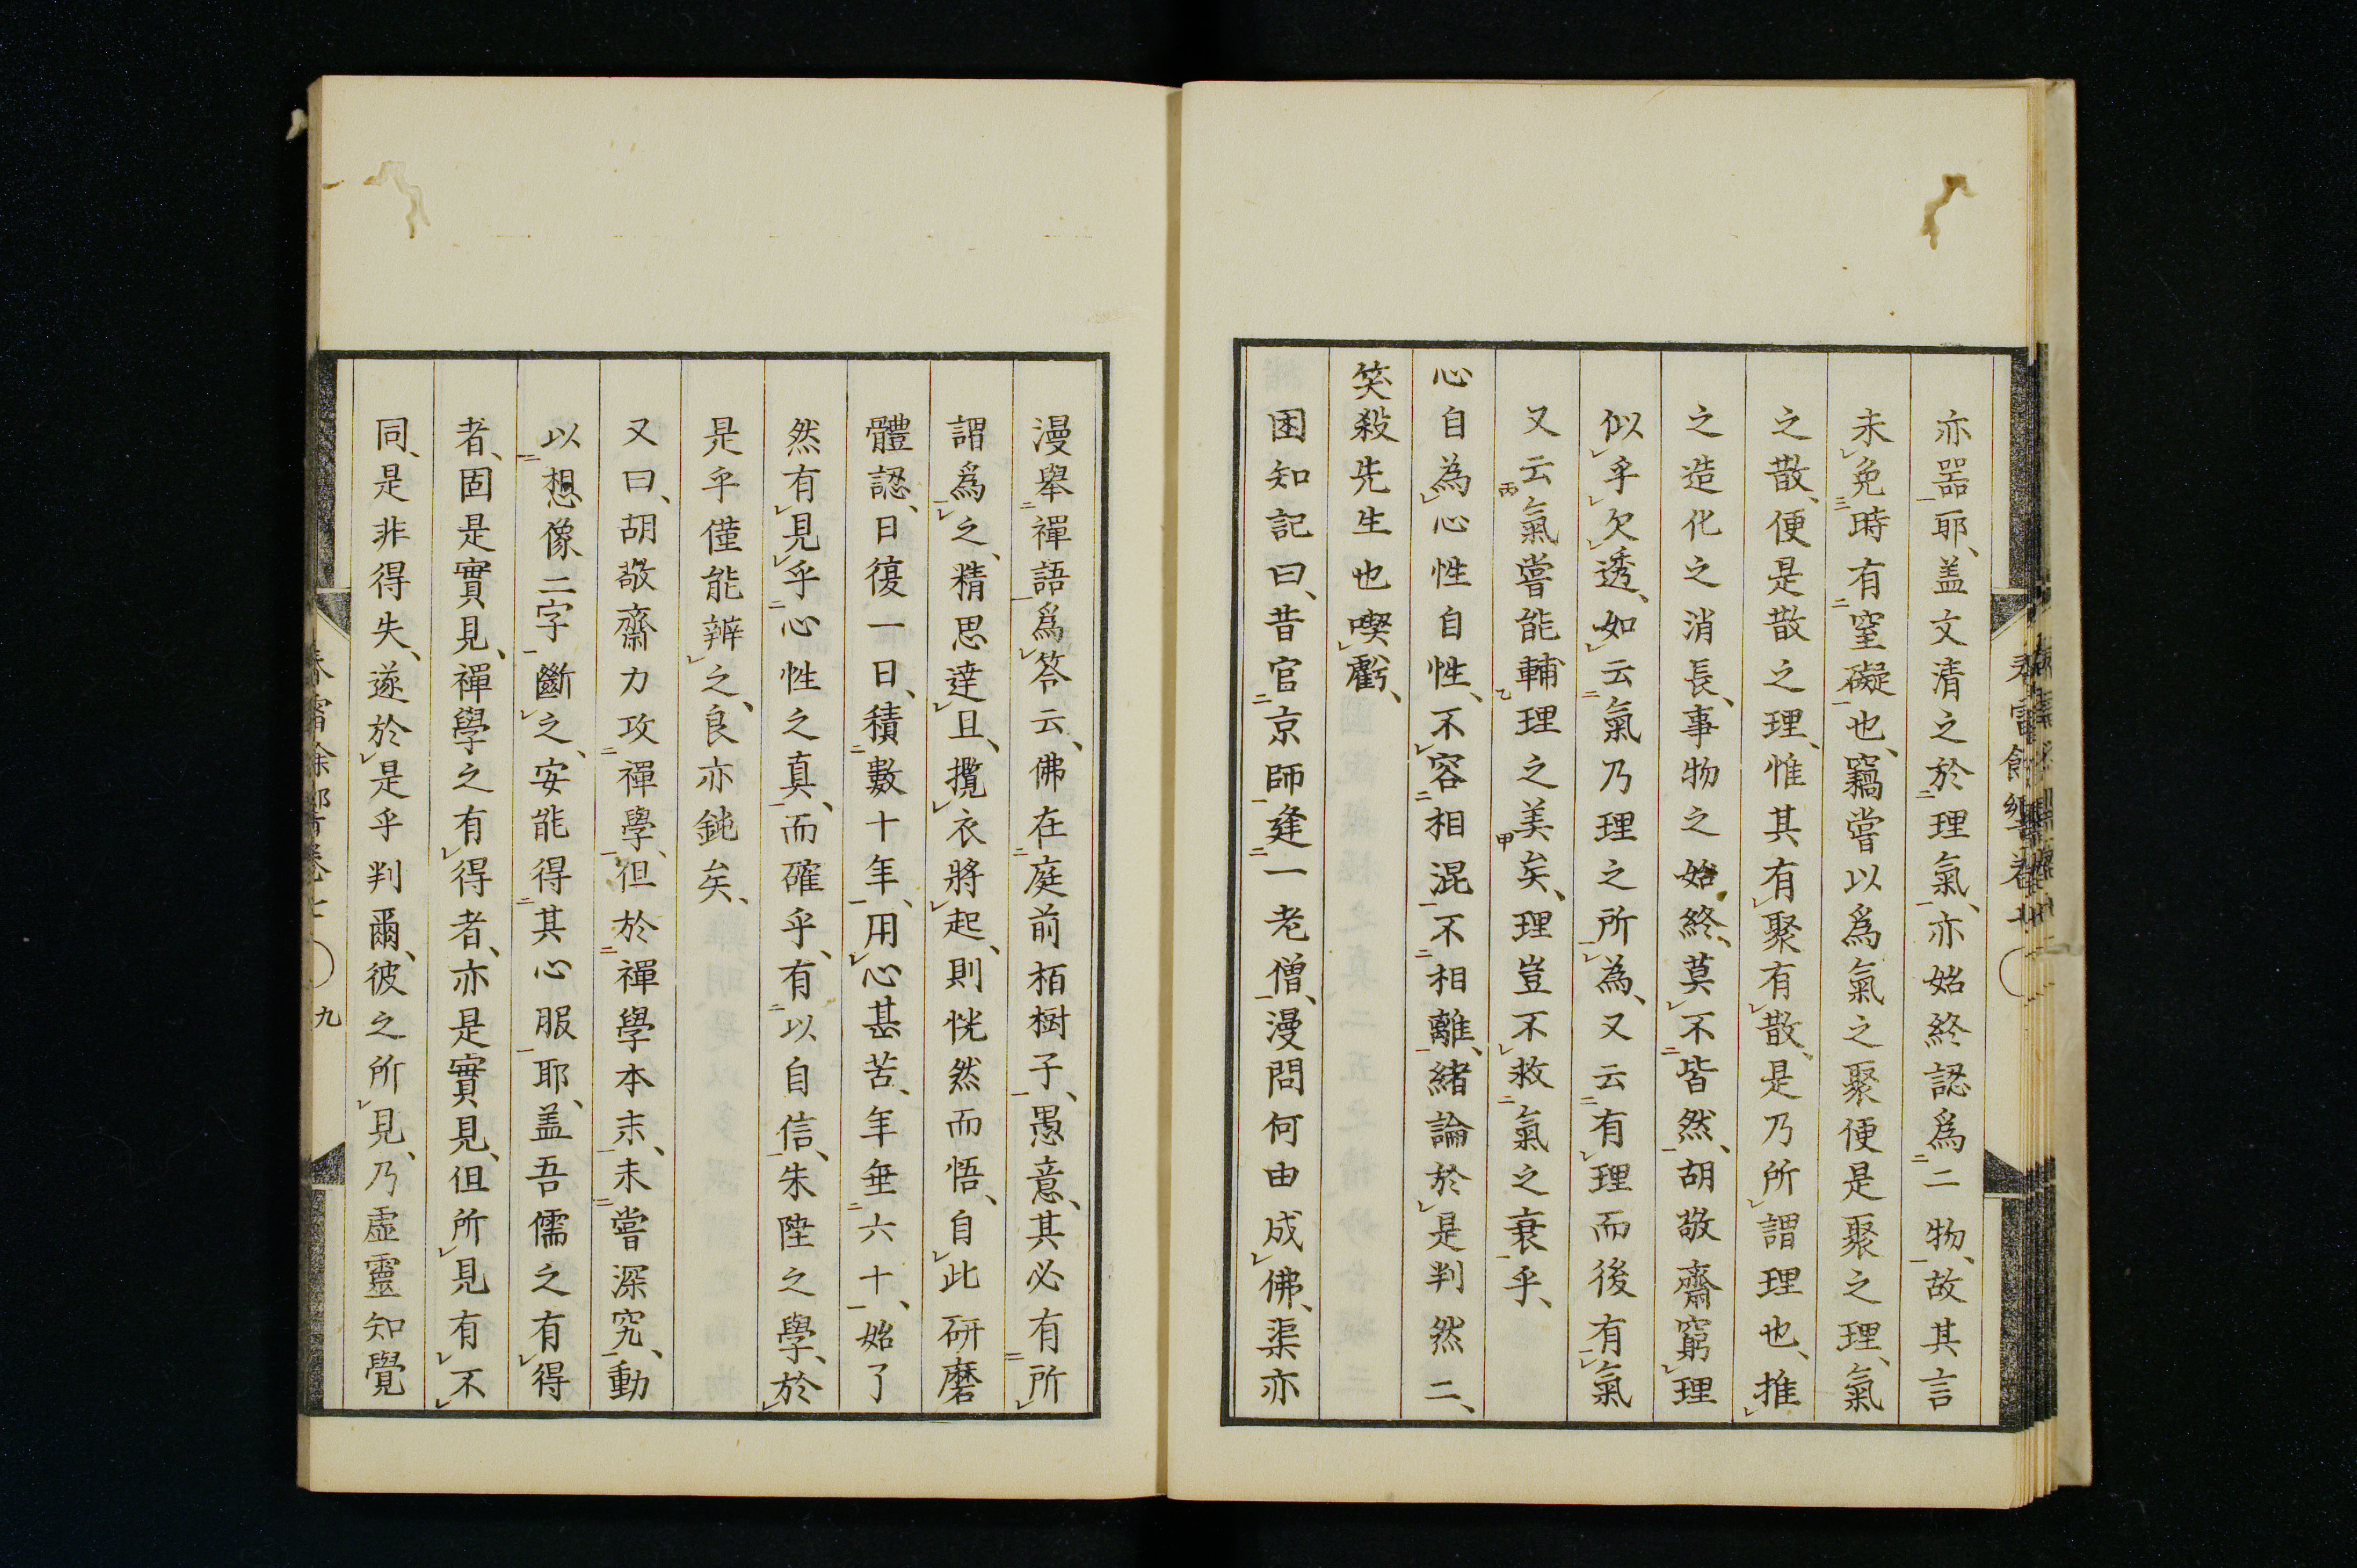 亦噐耶、盖文清之於理氣、亦始終認爲二物、故其言
未免時有窒礙也、竊嘗以爲氣之聚便是聚之理、氣
之散、便是散之理、惟其有聚有散、是乃所謂理也、推
之造化之消長、事物之始終、莫不皆然、胡敬齋窮理
似乎欠透、如云氣乃理之所為、又云有理而後有氣
又云氣嘗能輔理之美矣、理豈不救氣之衰乎、
心自為心性自性、不容相混不相離、緒論於是判然二、
笑殺先生也喫虧、
困知記曰、昔官京師逢一老僧、漫問何由成佛、渠亦
漫舉禪語爲答云、佛在庭前栢樹子、愚意、其必有所
謂爲之、精思達旦、攬衣將起、則恍然而悟、自此研磨
體認、日復一日、積數十年、用心甚苦、年垂六十、始了
然有見乎心性之真、而確乎、有以自信、朱陸之學、於
是乎僅能辨之、良亦鈍矣、
又曰、胡敬齋力攻禪學、但於禪學本末、未嘗深究、動
以想像二字斷之、安能得其心服耶、盖吾儒之有得
者、固是實見、禪學之有得者、亦是實見、但所見有不
同、是非得失、遂於是乎判爾、彼之所見、乃虛靈知覺
九